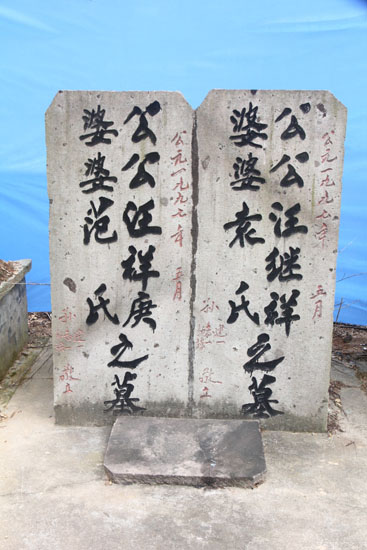 公元一九九七年三月
公公汪继祥之墓
婆婆袁氏
孙
敬立
公元一九九七年三月
公公汪祥庚之墓
婆婆范氏
孙
敬立